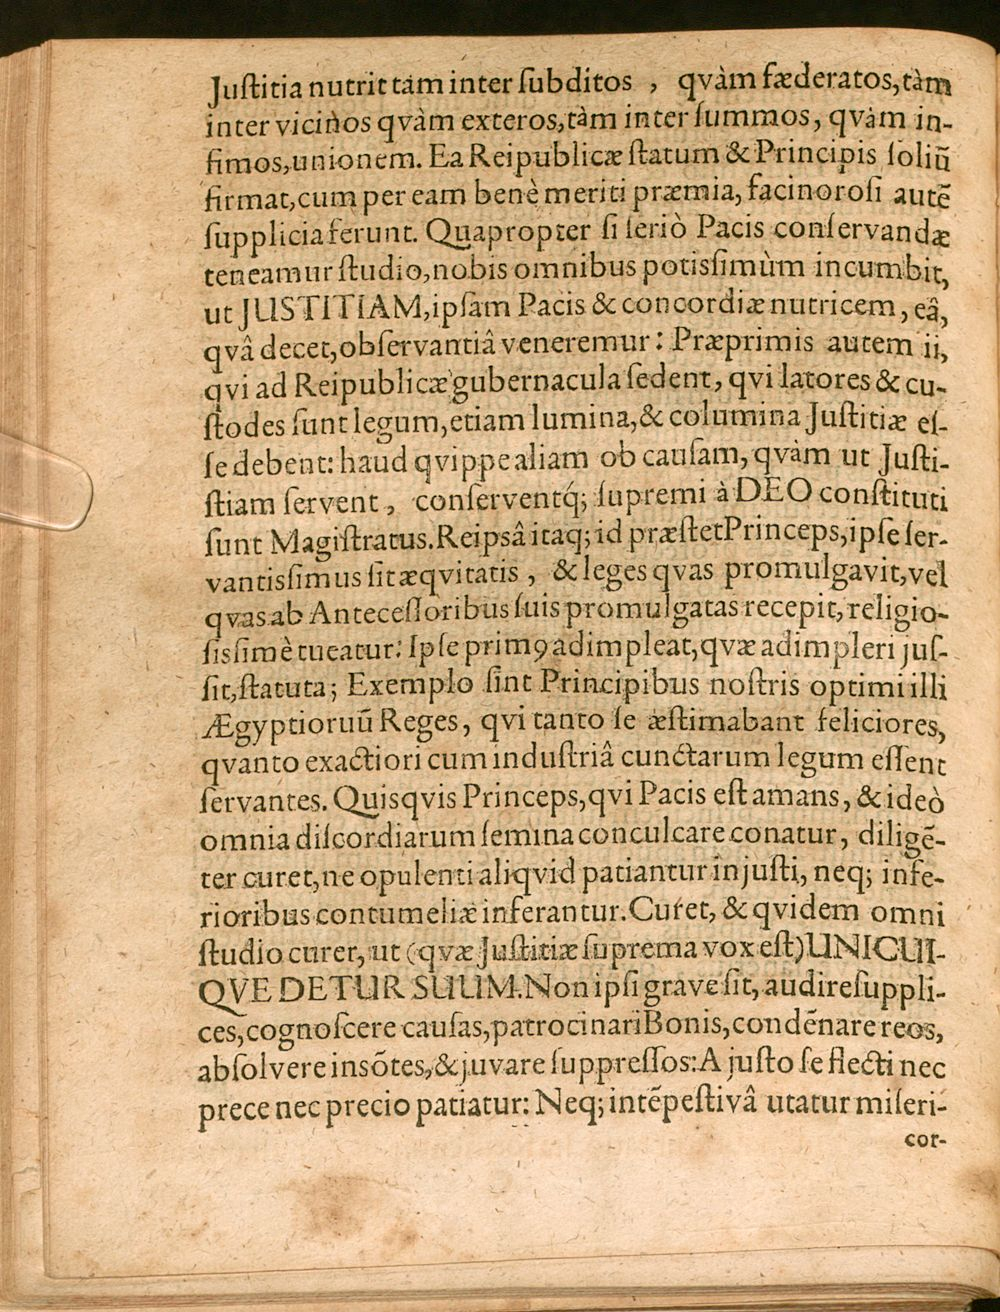 Juſtitia nutrit tàm inter ſubditos , qvàm fæderatos,tàm
inter vicinos qvàm exteros,tàm inter ſummos, qvàm in-
fimos,unionem. Ea Reipublicæ ſtatum & Principis ſoliū
firmat,cum per eam benè meriti præmia, facinoroſi autē
ſupplicia ferunt. Quapropter ſi ſeriò Pacis conſervandæ
teneamur ſtudio,nobis omnibus potisſimùm incumbit,
ut JUSTITIAM,ipſam Pacis & concordiæ nutricem, eâ,
qvâ decet,obſervantiâ veneremur: Præprimis autem ii,
qvi ad Reipublicæ gubernacula ſedent, qvi latores & cu-
ſtodes ſunt legum,etiam lumina,& columina Juſtitiæ eſ-
ſe debent: haud qvippe aliam ob cauſam, qvàm ut Juſti-
ſtiam ſervent , conſerventq́; ſupremi à DEO conſtituti
ſunt Magiſtratus.Reipsâ itaq; id præſtet Princeps,ipſe ſer-
vantisſimus ſit æqvitatis , & leges qvas promulgavit,vel
qvas ab Anteceſſoribus ſuis promulgatas recepit, religio-
ſisſimè tueatur: Ipſe primꝰ adimpleat,qvæ adimpleri juſ-
ſit,ſtatuta; Exemplo ſint Principibus noſtris optimi illi
Ægyptioruū Reges, qvi tanto ſe æſtimabant feliciores,
qvanto exactiori cum induſtriâ cunctarum legum eſſent
ſervantes. Quisqvis Princeps,qvi Pacis eſt amans, & ideò
omnia diſcordiarum ſemina conculcare conatur, diligē-
ter curet,ne opulenti aliqvid patiantur injuſti, neq; infe-
rioribus contumeliæ inferantur.Curet, & qvidem omni
ſtudio curet, ut (qvæ Juſtitiæ ſuprema vox eſt) UNICUI-
QVE DETUR SUUM.Non ipſi grave ſit, audire ſuppli-
ces,cognoſcere cauſas,patrocinari Bonis,condēnare reos,
abſolvere inſōtes,& juvare ſuppreſſos: A juſto ſe flecti nec
prece nec precio patiatur: Neq; intēpeſtivâ utatur miſeri-
cor-